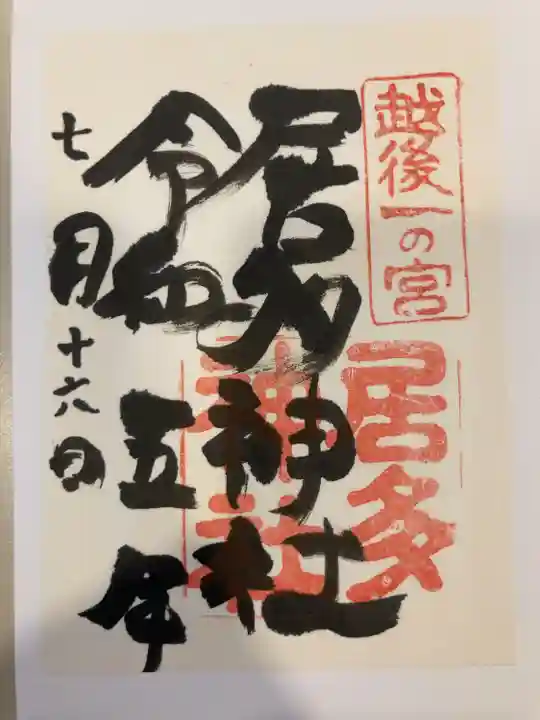 越後一の宮
居多
神社
居多神社
令和五年
七月十六日